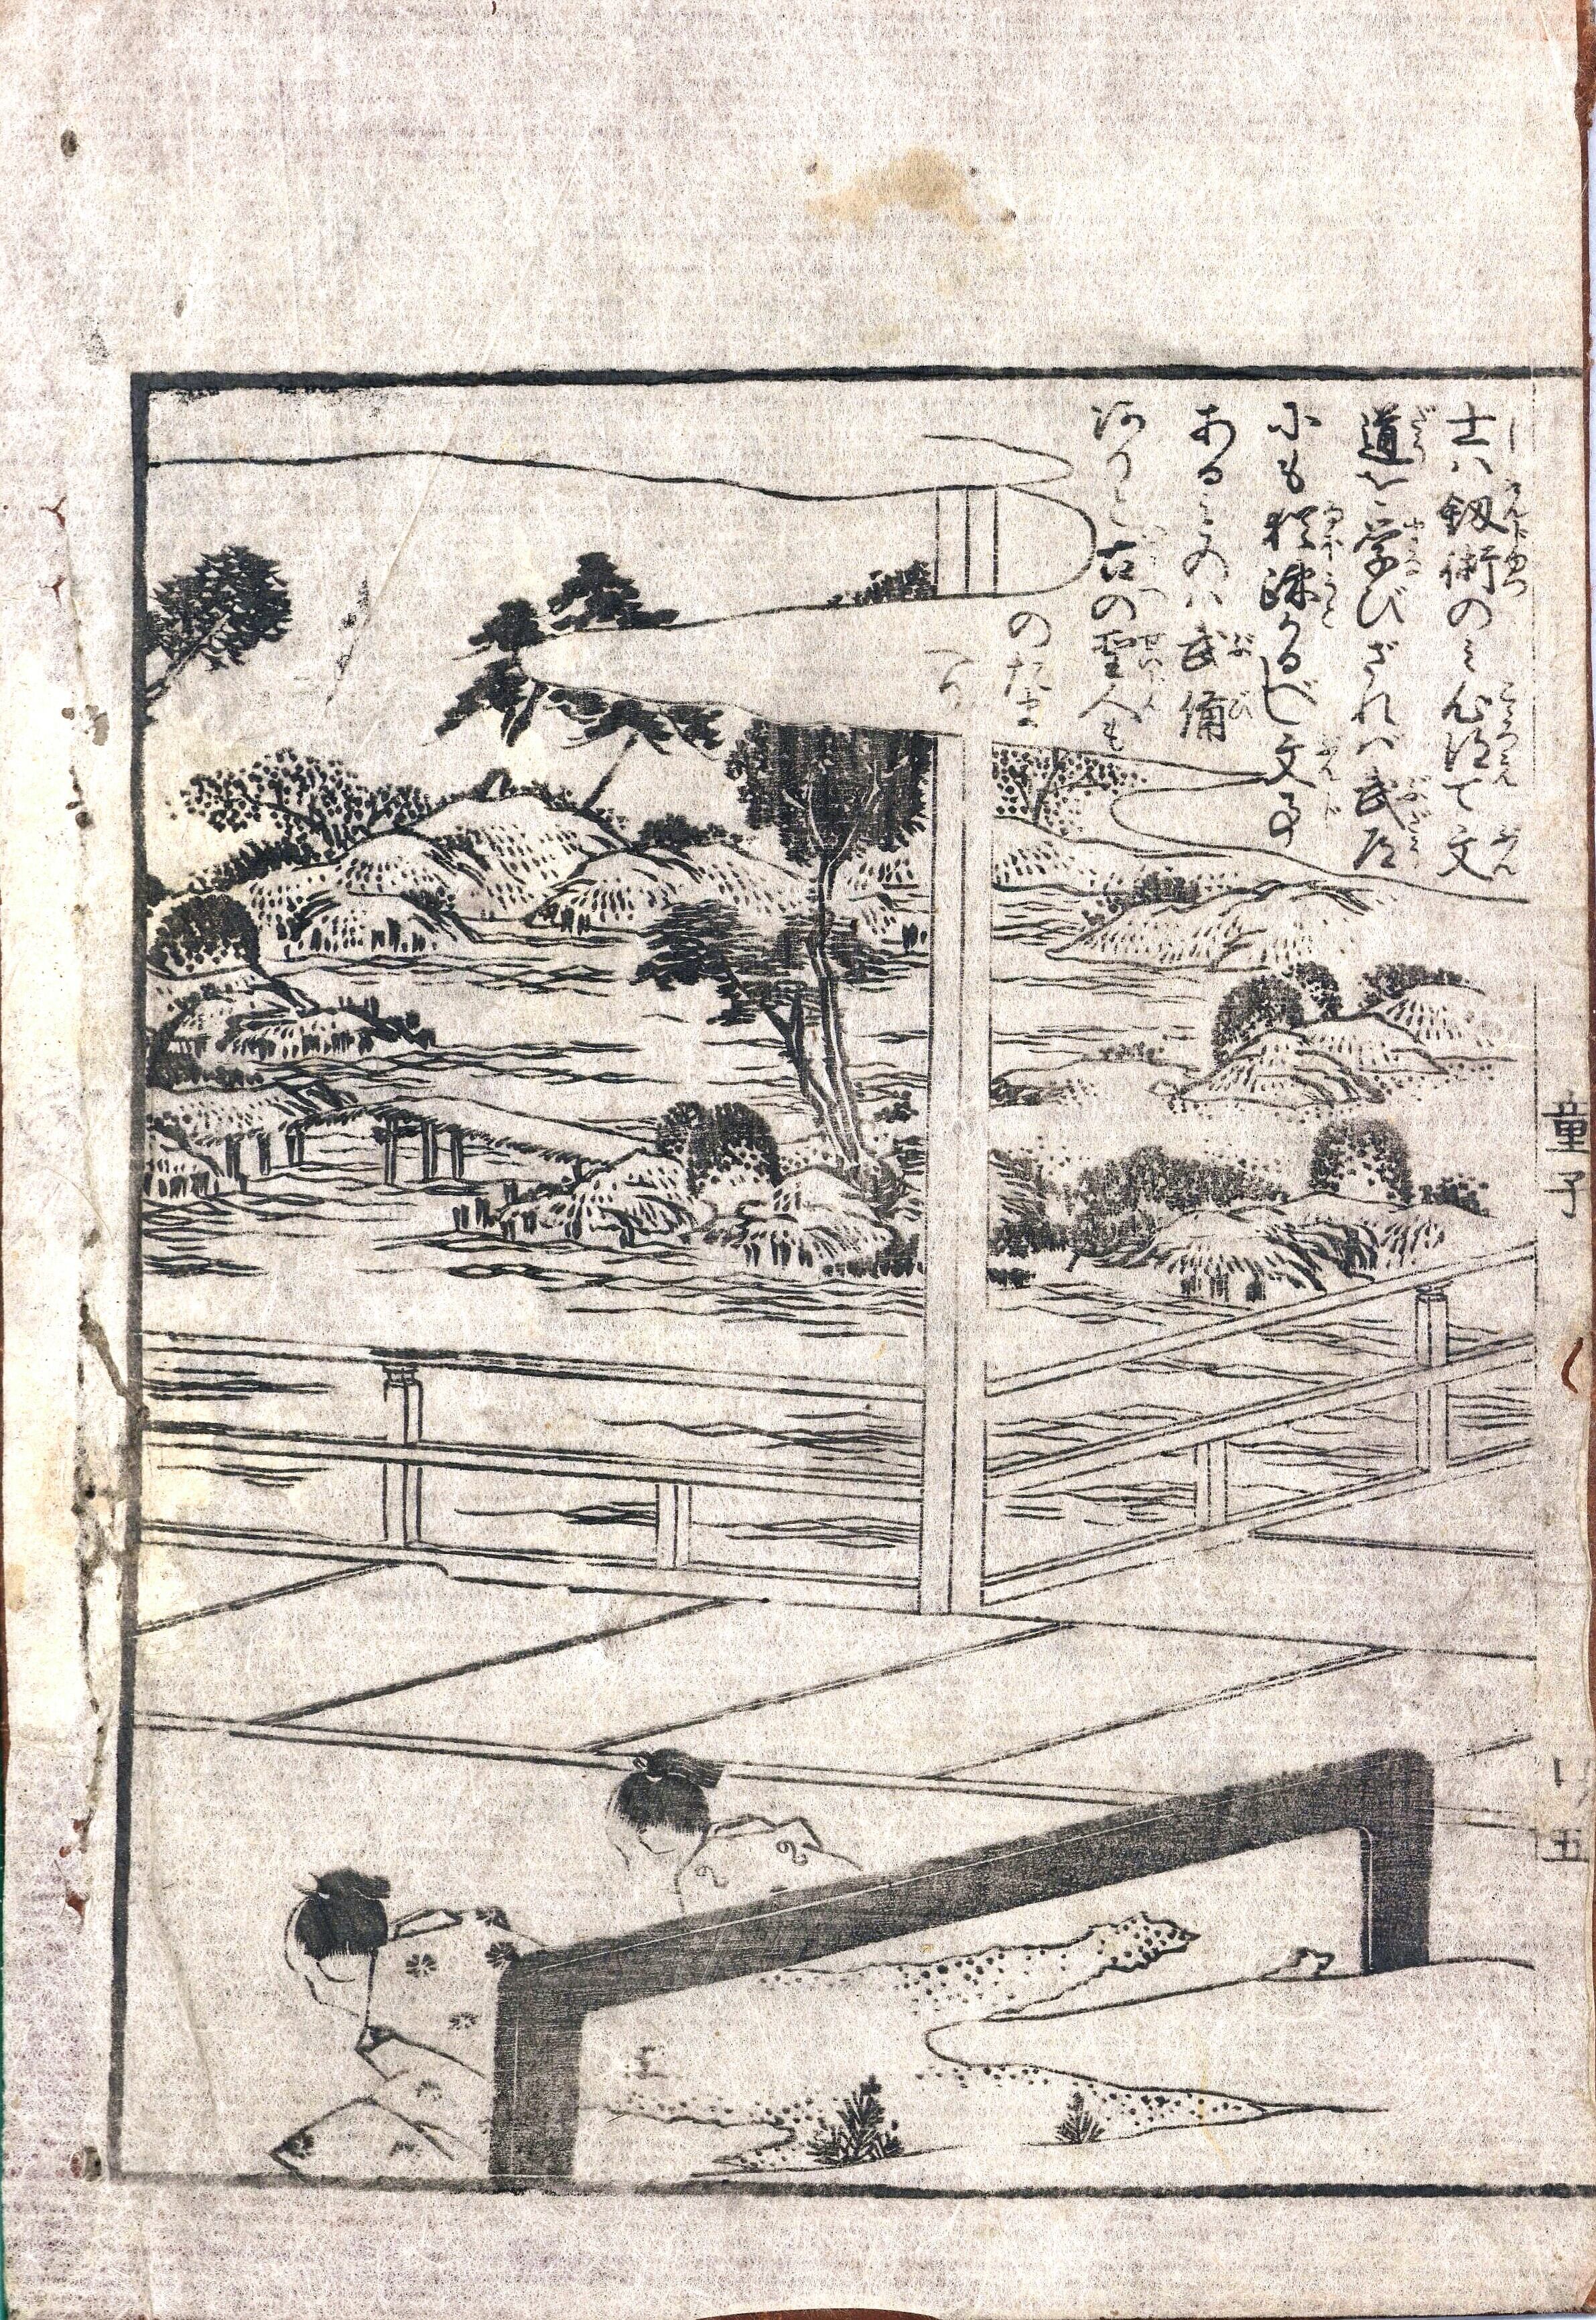 士ハ釼術のミ心得て文
道を学びざれバ武道
にも猶疎かるべし文事
あるものハ武備
ありと古の聖人も
のたま
童子
五